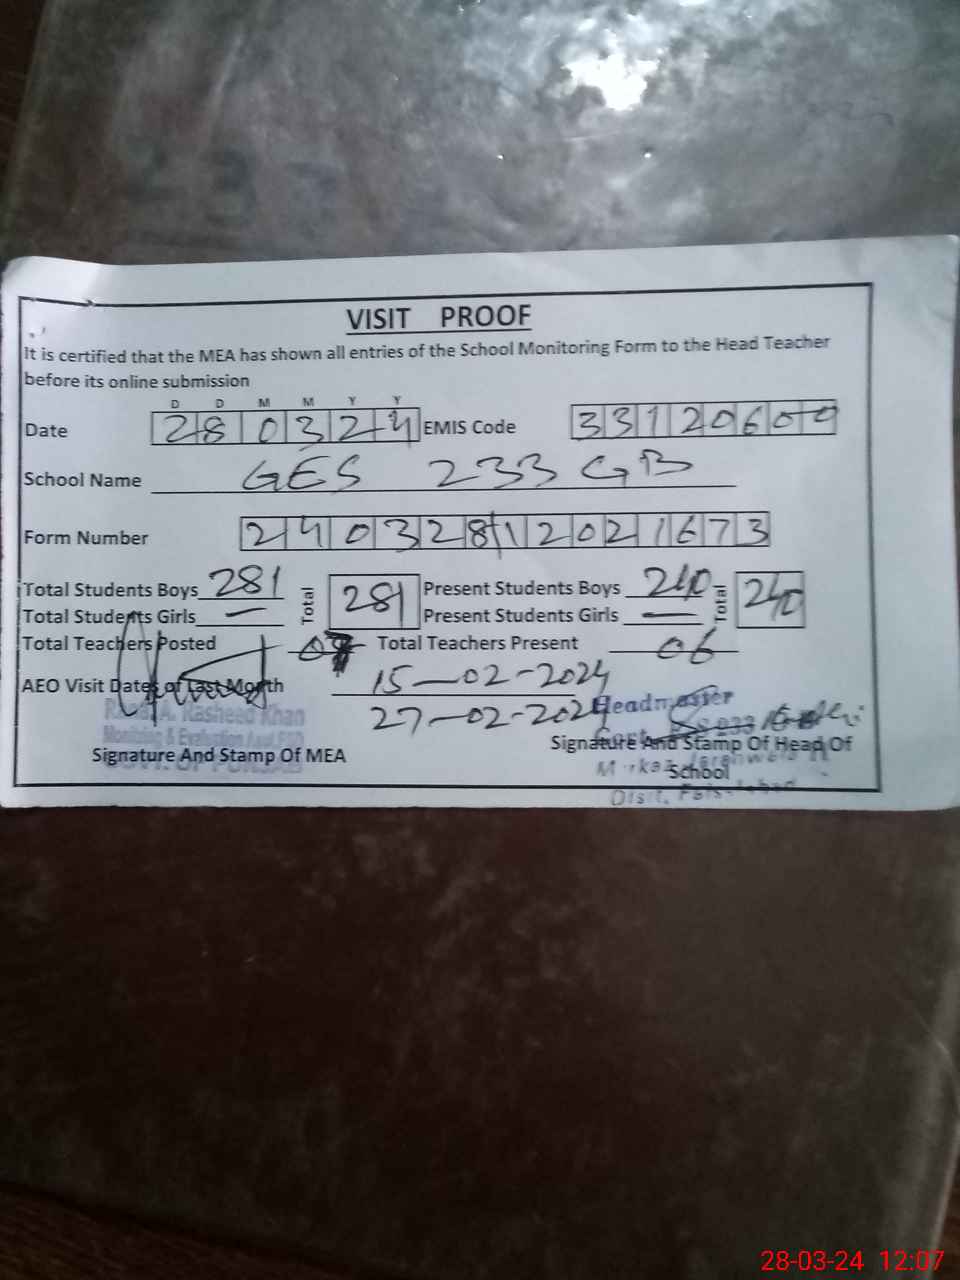 VISIT PROOF
It is certified that the MEA has shown all entries of the School Monitoring Form to the Head Teacher
before its online submission
D D M M Y Y
Date 280324 EMIS Code 33120600
School Name GES 233 GB
Form Number 24032812021673
Total Students Boys 281 Total 281 Present Students Boys 240 Total 240
Total Students Girls — Present Students Girls —
Total Teachers Posted Total Teachers Present 06
AEO Visit Dates of Last Month 15-02-2024
27-02-2024
Headmaster
A. Rasheed Khan
Monitoring & Evaluation
Signature And Stamp Of MEA
Signature And Stamp Of Head Of
School
28-03-24 12:07